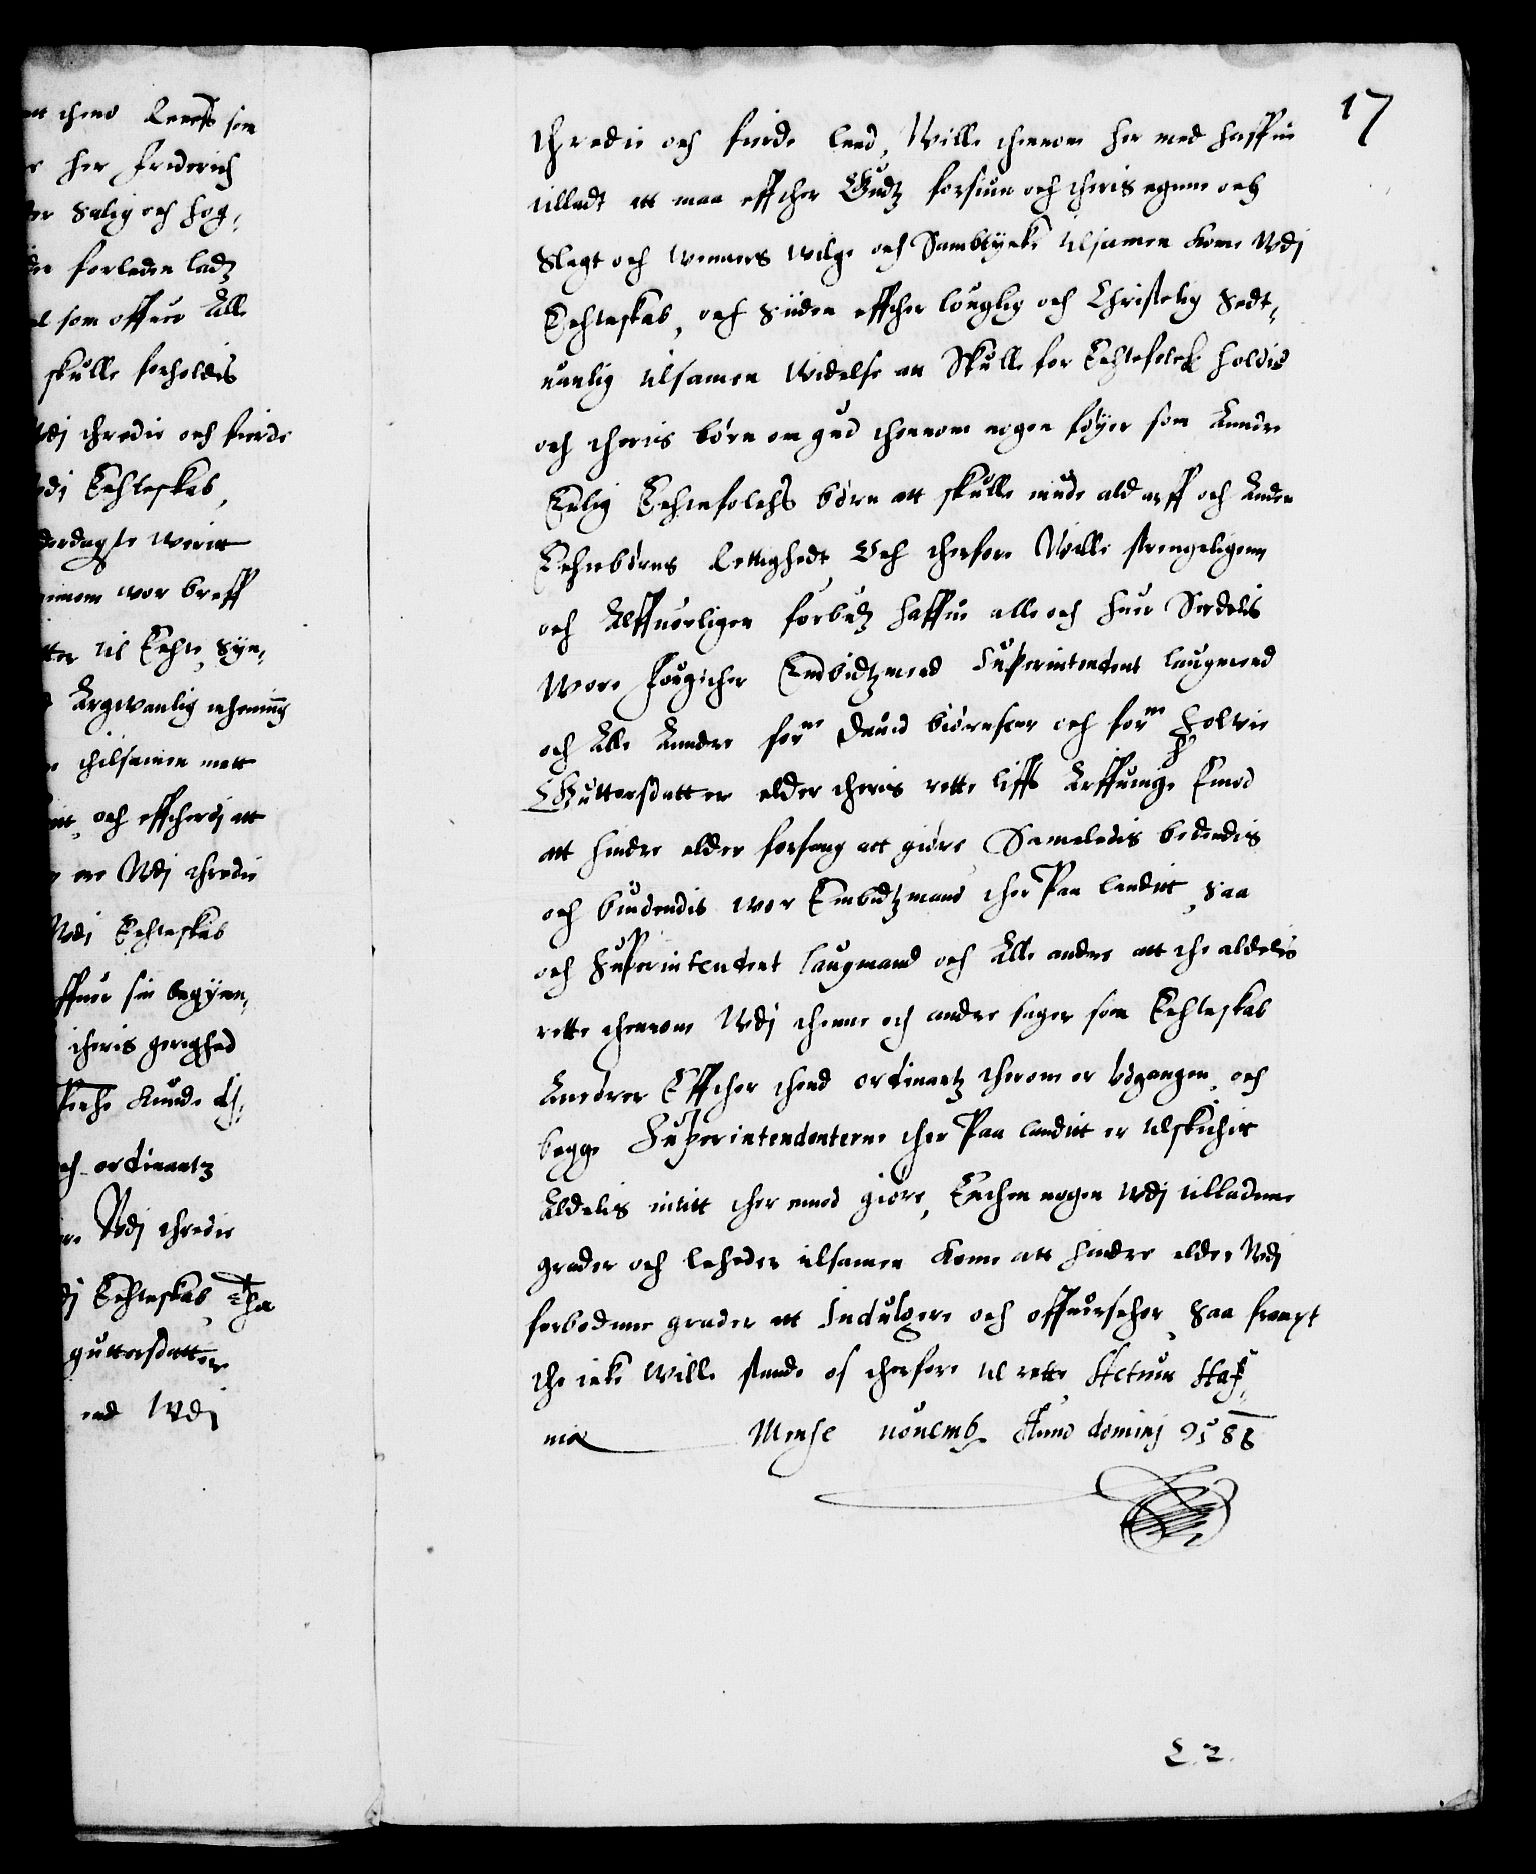 tt thend Rentt som
r her friderich
ter Salig och hog,
der forleden ladz
el som offuer Alle
skulle forholdis
Vdj thredie och fierde
Vdj Echteskab,
derdagste werit
ennem wor breff
tter til Echte, Syn,
Argwanlig
e thilsamen mett
itt, och effther dj att
er ere Vdj thredie
Vdj Echteskab
offuer sin begynn,
theris gerighed
kircke kunde dj,
och ordinantz
re Vdj thredie
dj Echteskab, tha
guttorsdatter
end Vdj
17
thredie och fierde leed, Wille thennom her med haffue
tilladt att maa effther Gudz forsiun och theris egenn och
Slegt och wenners wilge och Sambtycke tilsamen kome Vdj
Echteskab, och siiden effther louglig och Christelig Sedt,
uanlig tilsamen Widelse an Skulle for Echtefolck holdis
och theris børn om gud thennom nogen føyer som Anndre
Erlig Echtefolchs børn att skulle niude ald arff och Anden
Echtebørns Rettighedt, Och therfore Wille strengeligenn
och Alffuorligen forbudz haffue alle och huer Serdelis
Wore fougither Embidtzmend Superintendent laugmend
och Alle Anndre forne Dauid biørnsøn och forne Holdis
Guttorsdatter elder theris rette liffs Arffuinge Emod
att hindre elder forfang att giøre, Sameledis bedendis
och biudendis wor Embidtzmand ther Paa landitt, saa
och Superintendent laugmand och Alle andre att the aldelis
rette thennom Vdj thenne och andre sager som Echteskab
Anrører Effther thend ordinantz therom er vdgangen, och
begge Superintendenterne ther Paa landitt er tilskichit
Aldelis intitt ther emod giøre, Enthen nogen Vdj tilladenne
grader och leheder tilsamen kome att hindre elder Vdj
forbodenne grader att Indulgere och offuerseher, saa frampt
the icke Wille stande os therfore til rette, Actum Haf,
nia Mense nouemb Anno dominj 1586
E. 2.